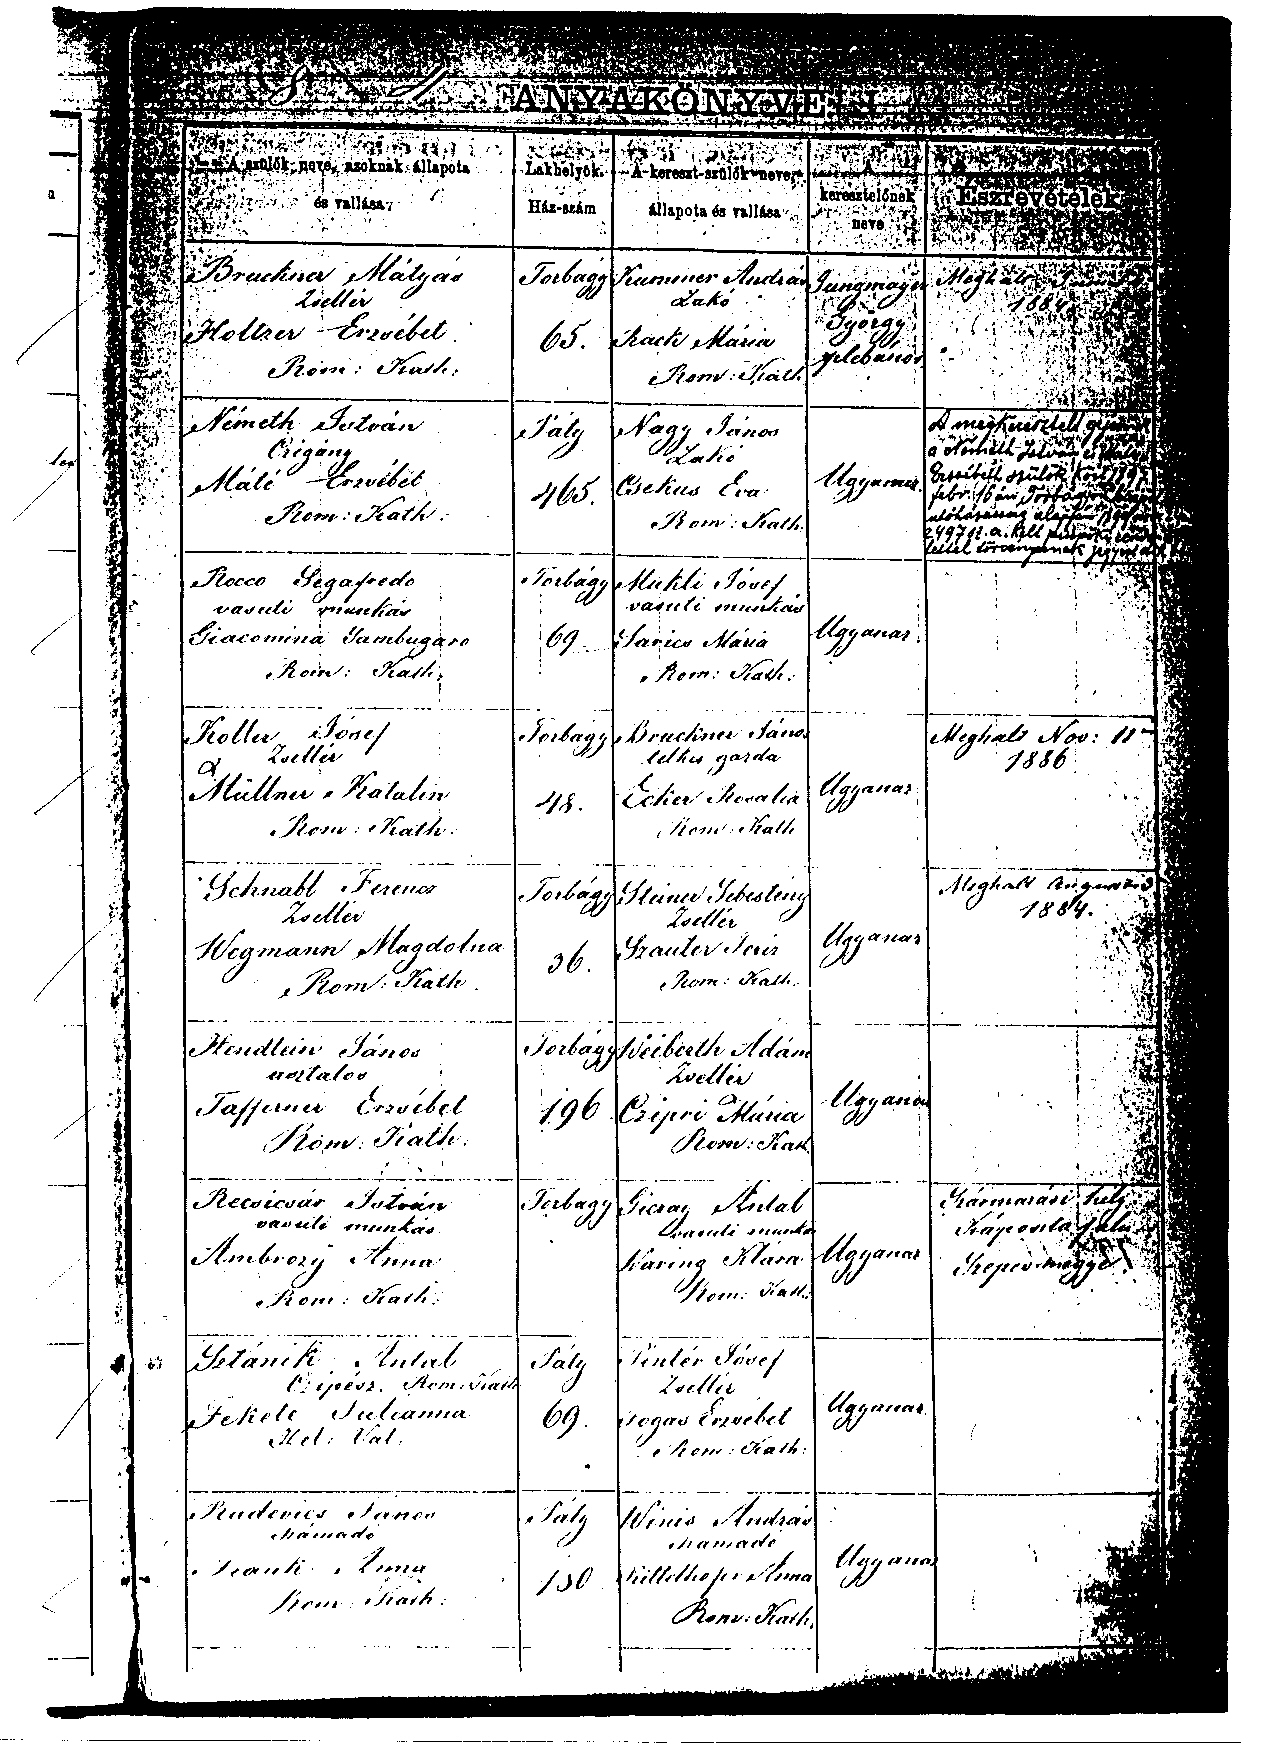 ANYAKÖNYVE
A szülők neve, azoknak állapota
és vallása
Lakhelyök.
Ház-szám
A kereszt-szülők neve,
állapota és vallása
A
keresztelőnek
neve
Észrevételek
Bruckner Mátyás
Zsellér
Holtzer Erzsébet
Rom: Kath:
Torbágy
65.
Kummer András
Lakó
Rack Mária
Rom: Kath
Jungmayer
György
plebános
Meghalt
1884.
Németh István
Czigány
Máté Erzsébet
Rom: Kath:
Pály
465.
Nagy János
Lakó
Csekus Éva
Rom: Kath.
Ugyanaz
A megkeresztelt
a Németh István és
Erzsébet szülők közt
febr. 16 án Torbágyon
utóházasság alapján
2497
törvényesnek
Rocco Segafredo
vasuti munkás
Giacomina Sambugaro
Rom: Kath:
Torbágy
69.
Mukli Jósef
vasuti munkás
Savics Mária
Rom: Kath:
Ugyanaz.
Koller Jósef
Zsellér
Müllner Katalin
Rom: Kath:
Torbágy
48.
Bruckner János
telkes gazda
Ecker Rosalia
Rom: Kath
Ugyanaz
Meghalt Nov: 11
1886
Schnabl Ferencz
Zsellér
Wegmann Magdolna
Rom: Kath.
Torbágy
36.
Steiner Sebestény
Zsellér
Szauter Teréz
Rom: Kath.
Ugyanaz
Meghalt Augusz 3
1884.
Hendlein János
asztalos
Tafferner Erzsébet
Rom: Kath:
Torbágy
196
Weiberth Ádám
Zsellér
Czipri Mária
Rom: Kath
Ugyanaz
Recsicsár István
vasuti munkás
Ambrozy Anna
Rom: Kath:
Torbagy
Gicsay Antal
vasuti munkás
Karing Klára
Rom: Kath:
Ugyanaz
Származási hely
Káposztafalu
Szepesmegye
Sztánik Antal
Czipész. Rom: Kath
Fekete Julianna
Hel: Val.
Pály
69.
Pintér Jósef
Zsellér
Togas Erzsébet
Rom: Kath:
Ugyanaz
Radevics János
számadó
Frank Anna
Rom: Kath:
Pály
130
Winis András
számadó
Kittelhofer Anna
Rom: Kath.
Ugyanaz